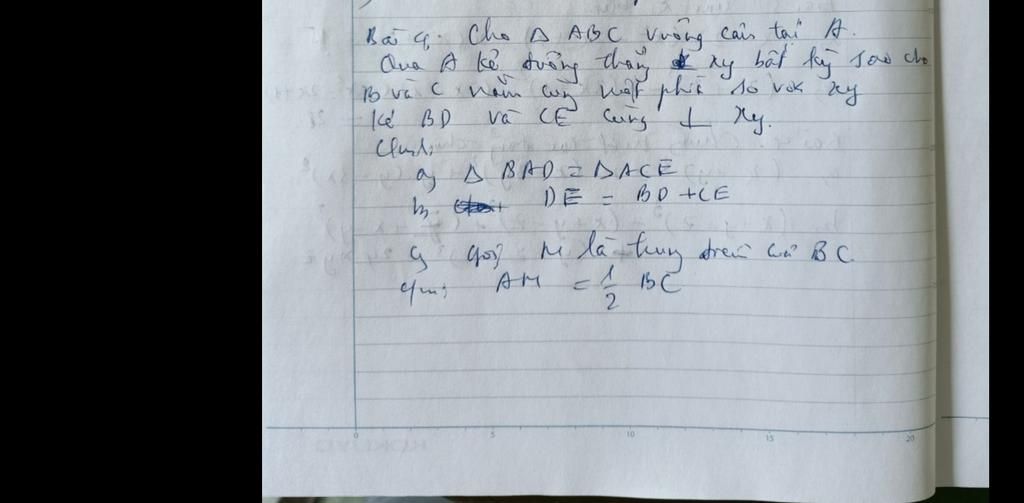 Bài 4. Cho Δ ABC vuông cân tại A.
Qua A kẻ đường thẳng xy bất kỳ sao cho
B và C nằm cùng một phía so với xy
Kẻ BD và CE cùng ⊥ xy.
Cm:
a) Δ BAD = Δ ACE
b) DE = BD + CE
c) gọi M là trung điểm của BC.
Cm: AM = 1/2 BC
0 5 10 15 20